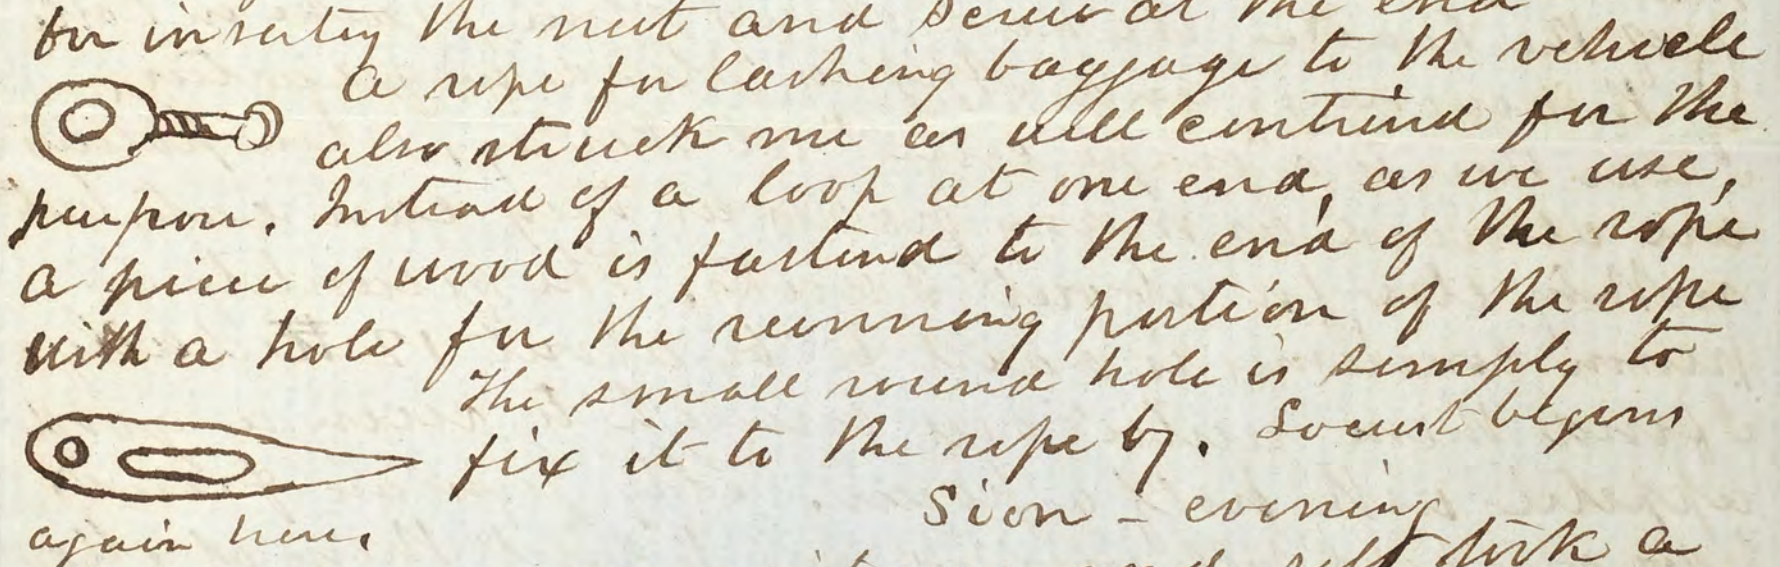 for inserting the nut and screw at the end
A rope for lashing baggage to the vehicle
also struck me as well contrived for the
purpose. Instead of a loop at one end, as we use,
a piece of wood is fastend to the end of the rope
with a hole for the running portion of the rope
The small round hole is simply to
fix it to the rope by. Locust begins
again here.
Sion - evening
and self took a